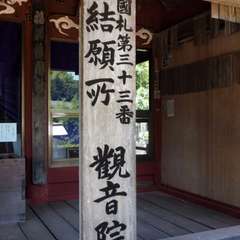 國札第三十三番
結願所
觀音院